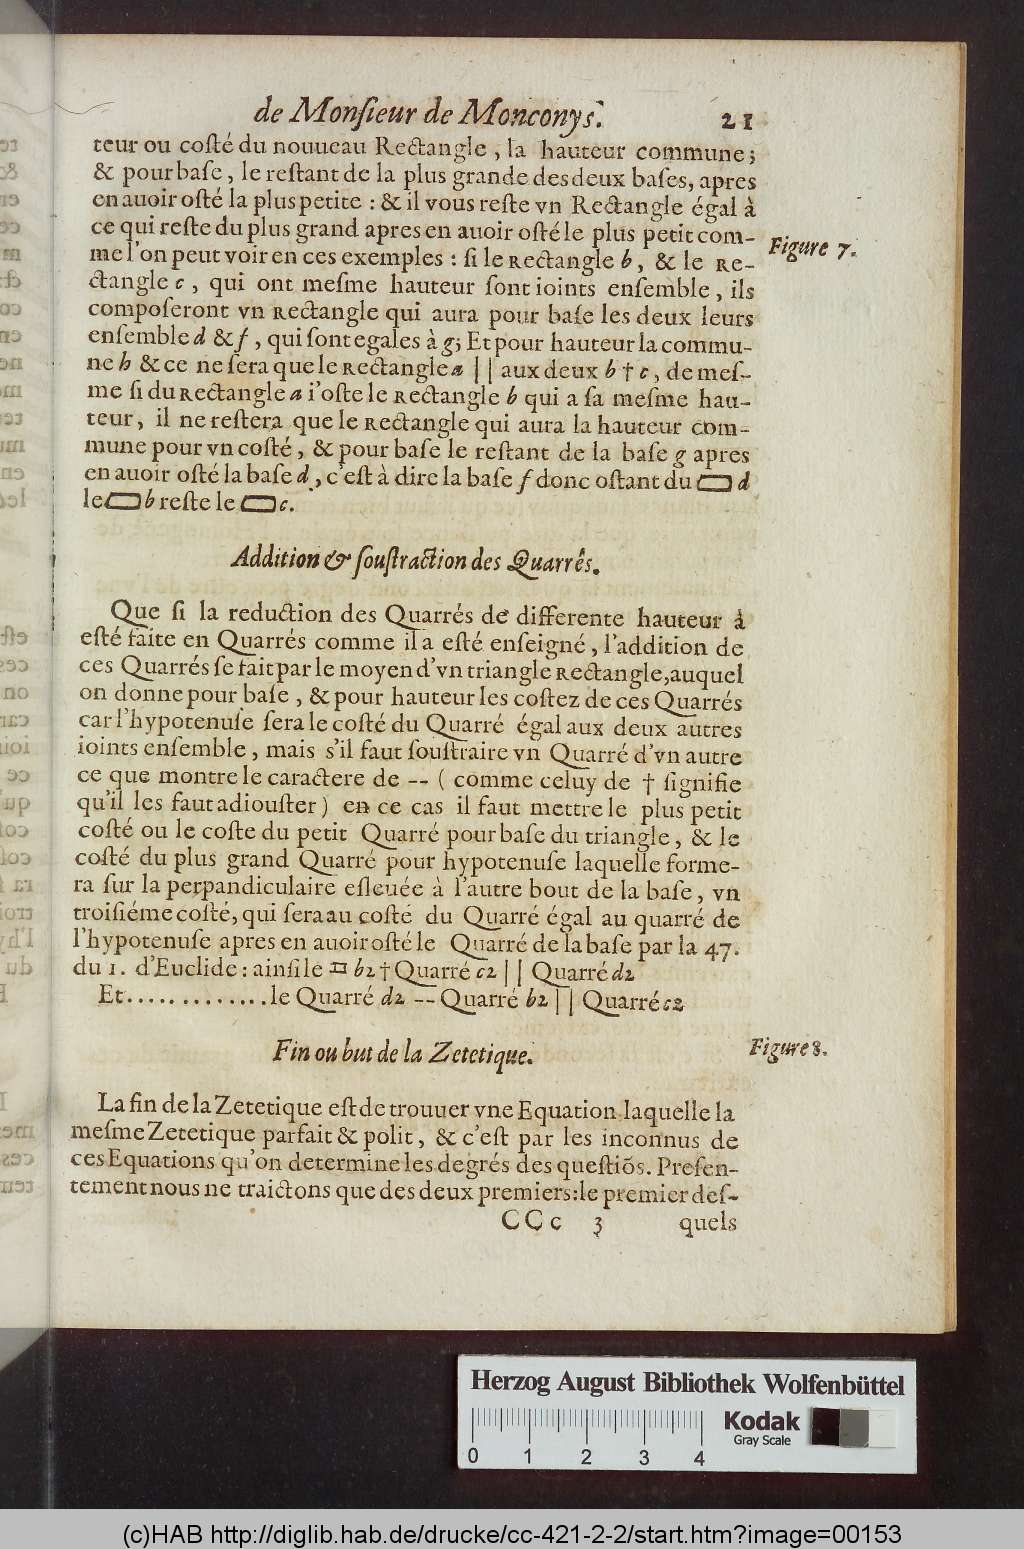 de Monſieur de Monconys. 21
teur ou coſté du nouueau Rectangle, la hauteur commune;
& pour baſe, le reſtant de la plus grande des deux baſes, apres
en auoir oſté la plus petite : & il vous reſte vn Rectangle égal à
ce qui reſte du plus grand apres en auoir oſté le plus petit com-
Figure 7.
me l'on peut voir en ces exemples : ſi le Rectangle b, & le Re-
ctangle c, qui ont meſme hauteur ſont ioints enſemble, ils
compoſeront vn Rectangle qui aura pour baſe les deux leurs
enſemble d & f, qui ſont egales à g; Et pour hauteur la commu-
ne h & ce ne ſera que le Rectangle a || aux deux b † c, de meſ-
me ſi du Rectangle a i'oſte le Rectangle b qui a ſa meſme hau-
teur, il ne reſtera que le Rectangle qui aura la hauteur com-
mune pour vn coſté, & pour baſe le reſtant de la baſe g apres
en auoir oſté la baſe d, c'eſt à dire la baſe f donc oſtant du ▭ d
le ▭ b reſte le ▭ c.
Addition & ſouſtraction des Quarrés.
Que ſi la reduction des Quarrés de differente hauteur à
eſté faite en Quarrés comme il a eſté enſeigné, l'addition de
ces Quarrés ſe fait par le moyen d'vn triangle Rectangle, auquel
on donne pour baſe, & pour hauteur les coſtez de ces Quarrés
car l'hypotenuſe ſera le coſté du Quarré égal aux deux autres
ioints enſemble, mais s'il faut ſouſtraire vn Quarré d'vn autre
ce que montre le caractere de -- ( comme celuy de † ſignifie
qu'il les faut adiouſter ) en ce cas il faut mettre le plus petit
coſté ou le coſte du petit Quarré pour baſe du triangle, & le
coſté du plus grand Quarré pour hypotenuſe laquelle forme-
ra ſur la perpandiculaire eſleuée à l'autre bout de la baſe, vn
troiſiéme coſté, qui ſera au coſté du Quarré égal au quarré de
l'hypotenuſe apres en auoir oſté le Quarré de la baſe par la 47.
du 1. d'Euclide : ainſi le □ b2 † Quarré c2 || Quarré d2
Et.............le Quarré d2 -- Quarré b2 || Quarré c2
Fin ou but de la Zetetique.
Figure 8.
La fin de la Zetetique eſt de trouuer vne Equation laquelle la
meſme Zetetique parfait & polit, & c'eſt par les inconnus de
ces Equations qu'on determine les degrés des queſtiõs. Preſen-
tement nous ne traictons que des deux premiers : le premier deſ-
CCc 3 quels
Herzog August Bibliothek Wolfenbüttel
Kodak
Gray Scale
0 1 2 3 4
(c)HAB http://diglib.hab.de/drucke/cc-421-2-2/start.htm?image=00153